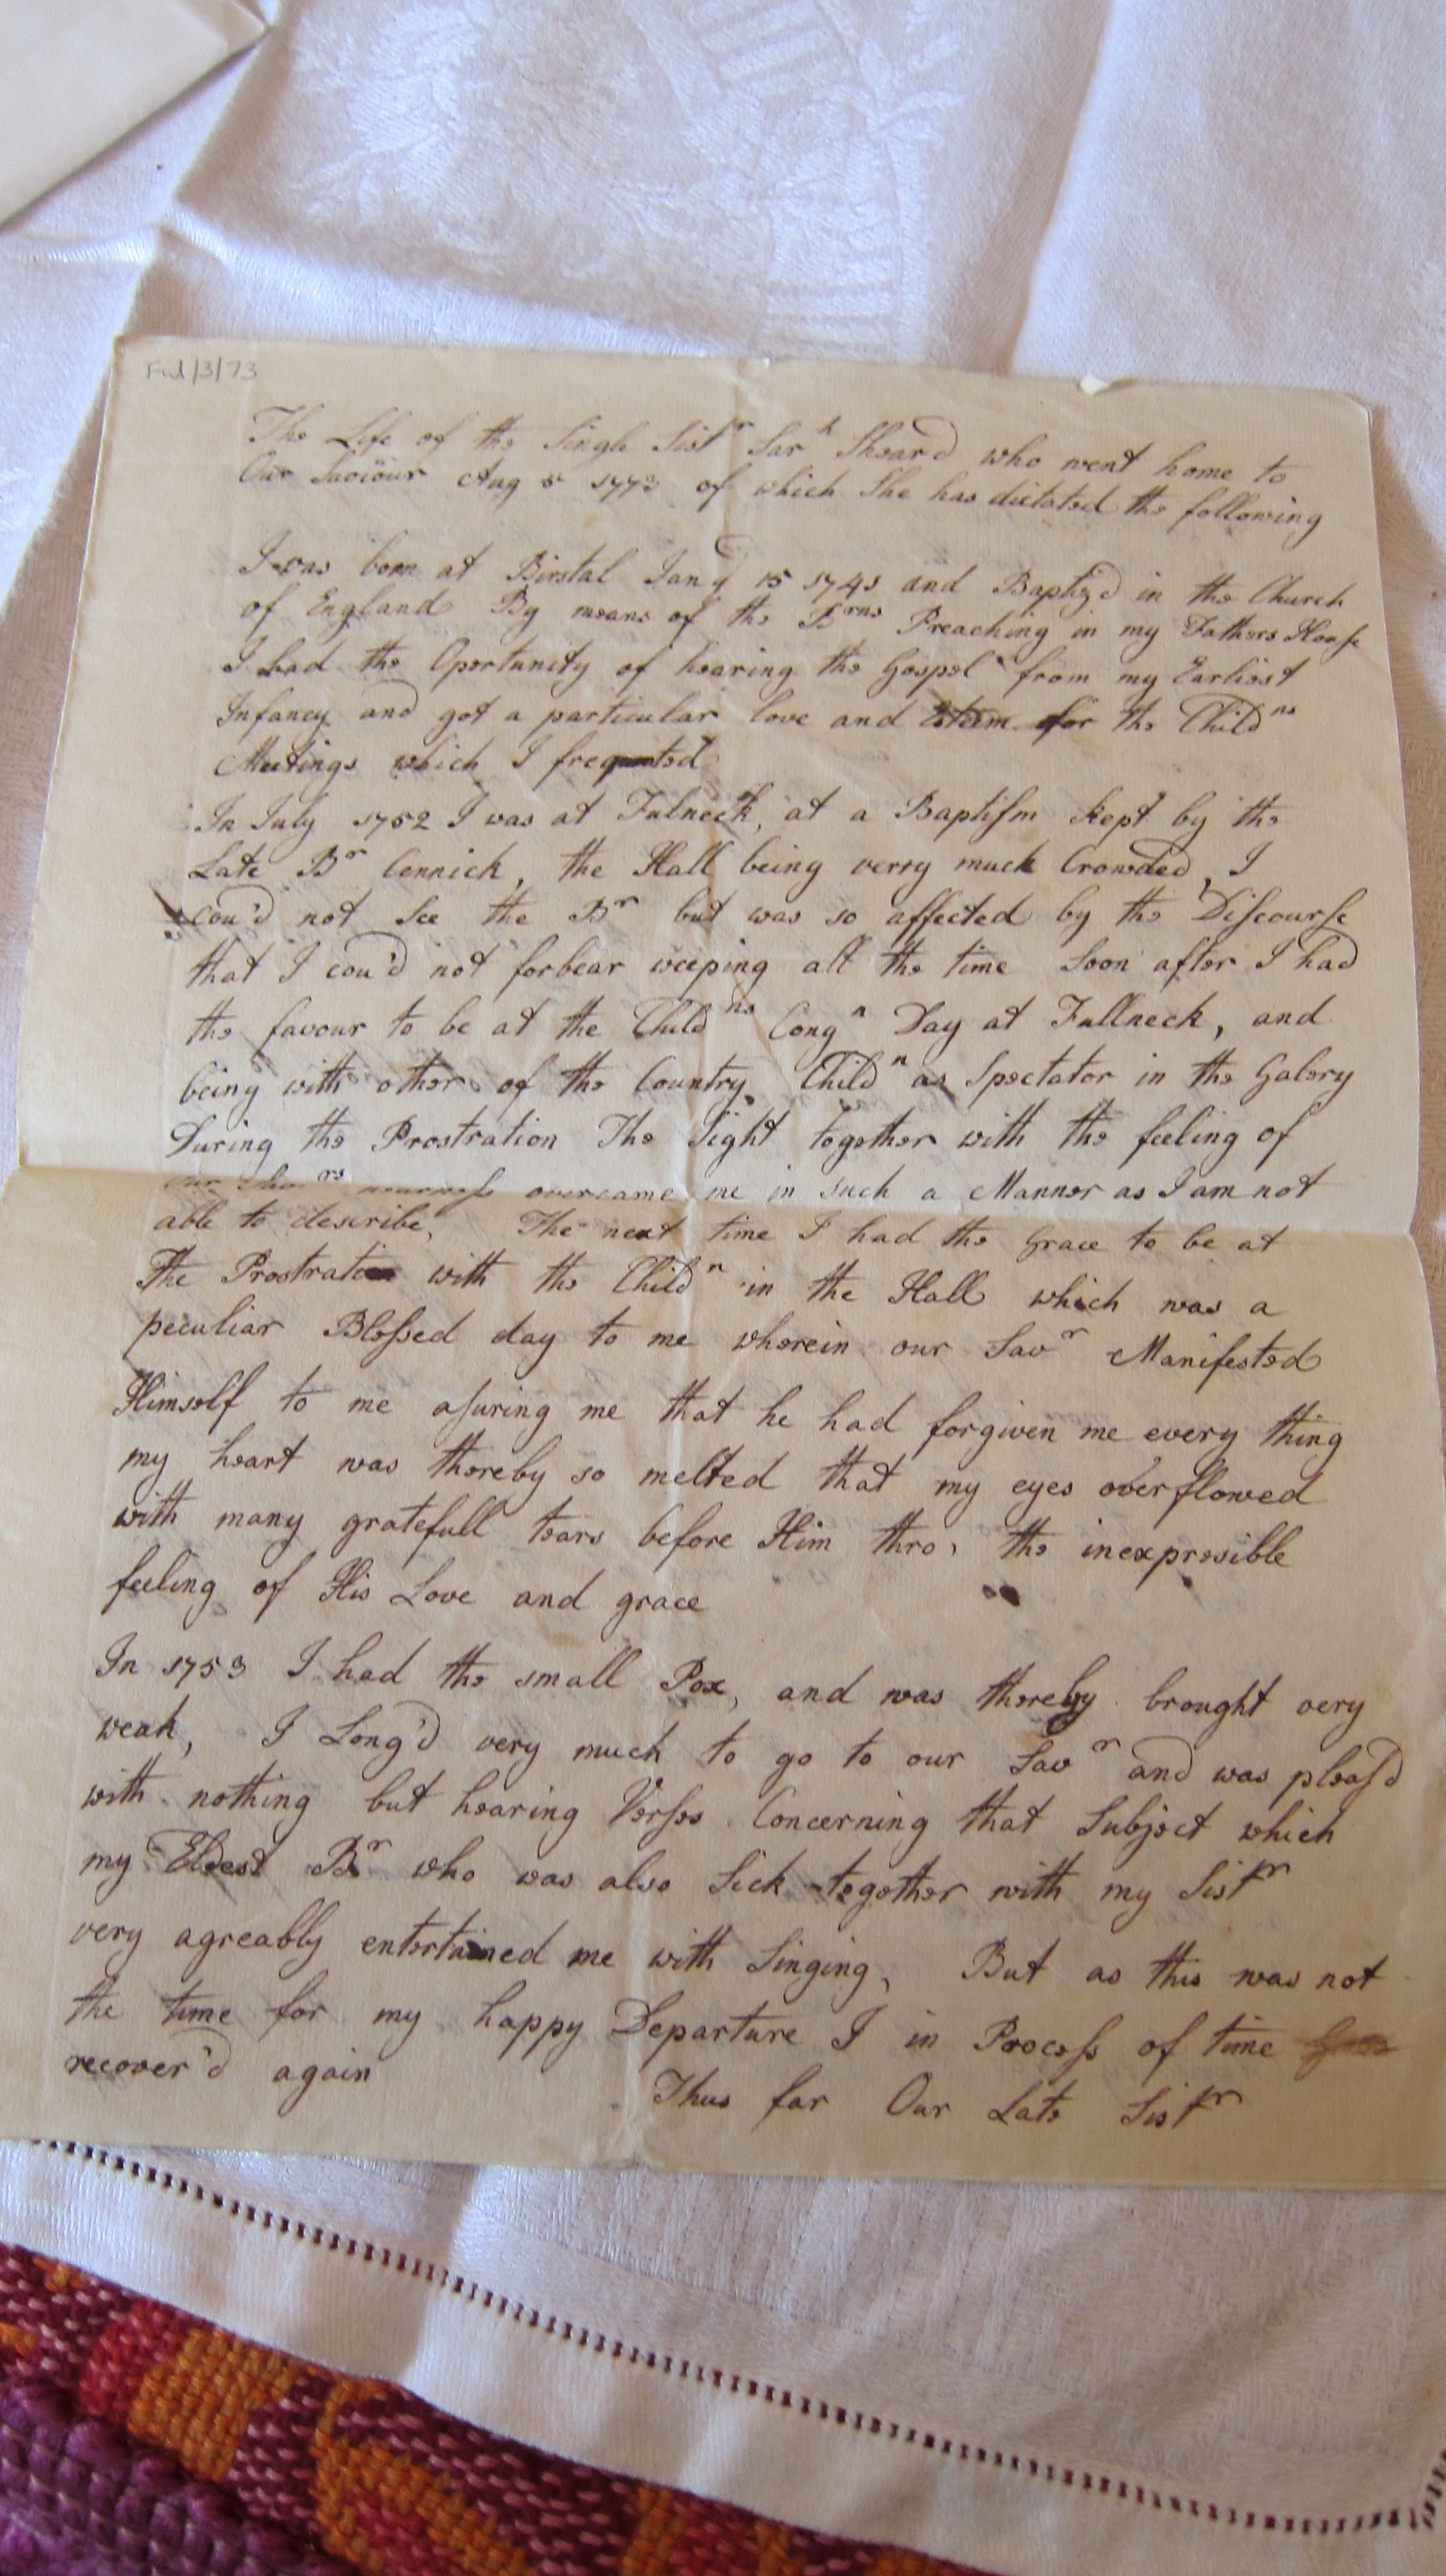 Ful/3/73
The Life of the Single Sistr Sarh Sheard who went home to
Our Saviour Aug 5 1773 of which She has dictated the following
I was born at Birstal Jany 15 1743 and Baptiz'd in the Church
of England By means of the Brns Preaching in my Fathers House
I had the Oportunity of hearing the Gospel from my Earliest
Infancy and got a particular love and Esteem for the Childns
Meetings which I frequented
In July 1752 I was at Fulneck, at a Baptism kept by the
Late Br Cennick, the Hall being verry much Crowded, I
cou'd not See the Br but was so affected by the Discourse
that I cou'd not forbear weeping all the time Soon after I had
the favour to be at the Childns Congn Day at Fullneck, and
being with others of the Country Childn as Spectator in the Galery
During the Prostration The Sight together with the feeling of
our nearness overcame me in such a Manner as I am not
able to describe, The next time I had the Grace to be at
The Prostration with the Childn in the Hall which was a
peculiar Blessed day to me wherein our Savr Manifested
Himself to me asuring me that he had forgiven me every thing
my heart was thereby so melted that my eyes overflowed
with many gratefull tears before Him thro' the inexpresible
feeling of His Love and grace
In 1753 I had the small Pox, and was thereby brought very
weak, I Long'd very much to go to our Savr and was pleas'd
with nothing but hearing Verses Concerning that Subject which
my Eldest Br who was also Sick together with my Sistr
very agreably entertained me with Singing, But as this was not
the time for my happy Departure I in Process of time
recover'd again
Thus far Our Late Sistr